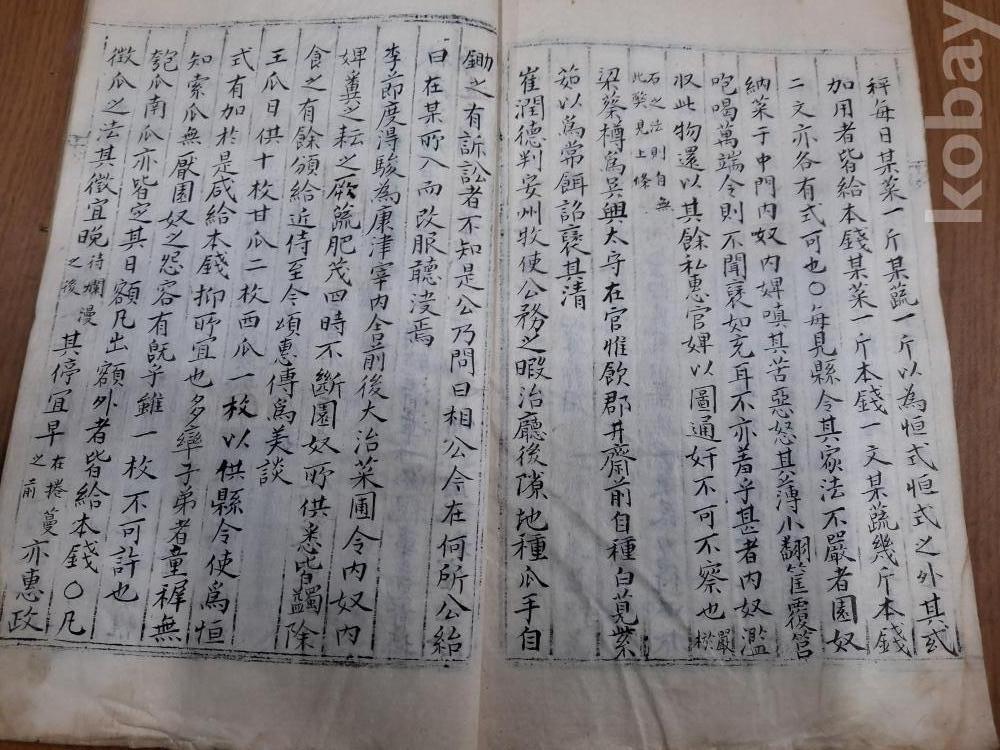 秤每日某菜一斤某蔬一斤以為恒式恒式之外其或
加用者皆給本錢某菜一斤本錢一文某蔬幾斤本錢
二文亦各有式可也〇每見縣令其家法不嚴者園奴
納菜于中門內奴內婢嗔其苦惡怒其薄小翻筐覆筥
咆喝萬端令則不聞褎如充耳不亦羞乎甚者內奴濫
收此物還以其餘私惠官婢以圖通奸不可不察也嚴
石之法則自無
此獘見上條
梁蔡樽爲吳興太守在官惟飲郡井齋前自種白莧紫
茹以爲常餌詔褒其清
崔潤德判安州牧使公務之暇治廳後隙地種瓜手自
鋤之有訴訟者不知是公乃問曰相公今在何所公紿
曰在某所入而改服聽决焉
李節度得駿為康津宰內舍前後大治菜圃令內奴內
婢糞之耘之厥蔬肥茂四時不斷園奴所供悉皆蠲除
食之有餘頒給近侍至今頌惠傳爲美談
王瓜日供十枚甘瓜二枚西瓜一枚以供縣令使爲恒
式有加於是咸給本錢抑所宜也多率子弟者童穉無
知索瓜無厭園奴之怨容有旣乎雖一枚不可許也
匏瓜南瓜亦皆定其日額凡出額外者皆給本錢〇凡
徵瓜之法其徵宜晚待爛漫之後其停宜早在捲蔓之前亦惠政
kobay